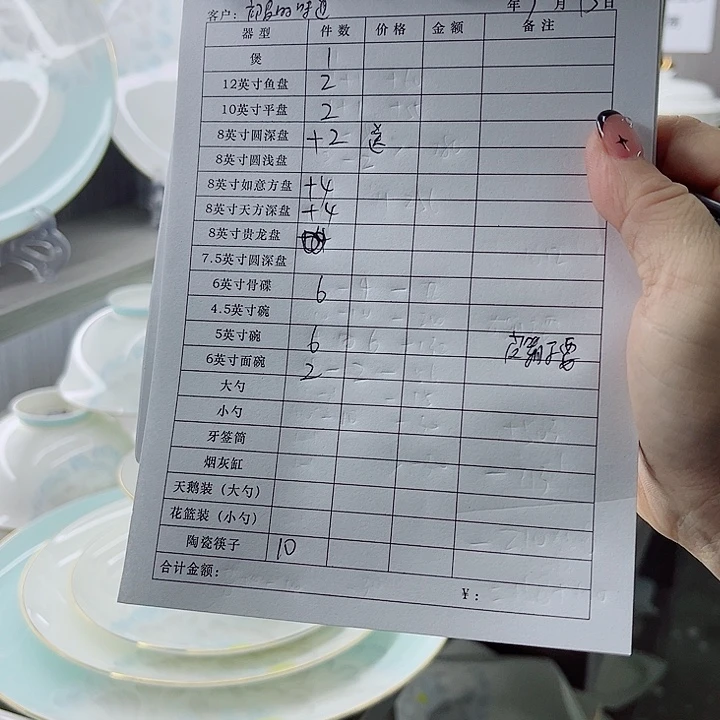 客户： 的味道 年 月 13日
器型 件数 价格 金额 备注
煲 1
12英寸鱼盘 2
10英寸平盘 2
8英寸圆深盘 +2 送
8英寸圆浅盘
8英寸如意方盘 +4
8英寸天方深盘 +4
8英寸贵龙盘
7.5英寸圆深盘
6英寸骨碟 6
4.5英寸碗
5英寸碗 6
6英寸面碗 2
大勺
小勺
牙签筒
烟灰缸
天鹅装（大勺）
花篮装（小勺）
陶瓷筷子 10
合计金额： ¥：